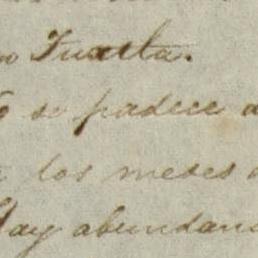 Tuxtla.
se padece
los meses
Hay abundan